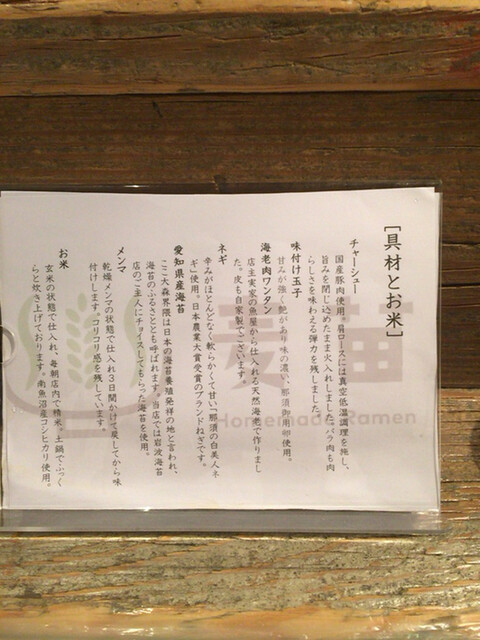 [具材とお米]
チャーシュー
国産豚肉使用。肩ロースには真空低温調理を施し、
旨みを閉じ込めたまま火入れしました。バラ肉も肉
らしさを味わえる弾力を残しました。
味付け玉子
甘みが強く艶があり味の濃い、那須御用卵使用。
海老肉ワンタン
店主実家の魚屋から仕入れる天然海老で作りまし
た。皮も自家製でございます。
ネギ
辛みがほとんどなく軟らかくて甘い「那須の白美人ネ
ギ」使用。日本農業大賞受賞のブランドねぎです。
愛知県産海苔
ここ大森界隈は日本の海苔養殖発祥の地と言われ、
海苔のふるさととも呼ばれます。当店では岩波海苔
店のご主人にチョイスしてもらった海苔を使用。
メンマ
乾燥メンマの状態で仕入れ3日間かけて戻してから味
付けします。コリコリ感を残しています。
お米
玄米の状態で仕入れ、毎朝店内で精米。土鍋でふっく
らと炊き上げております。南魚沼産コシヒカリ使用。
麦苗
Homemade Ramen